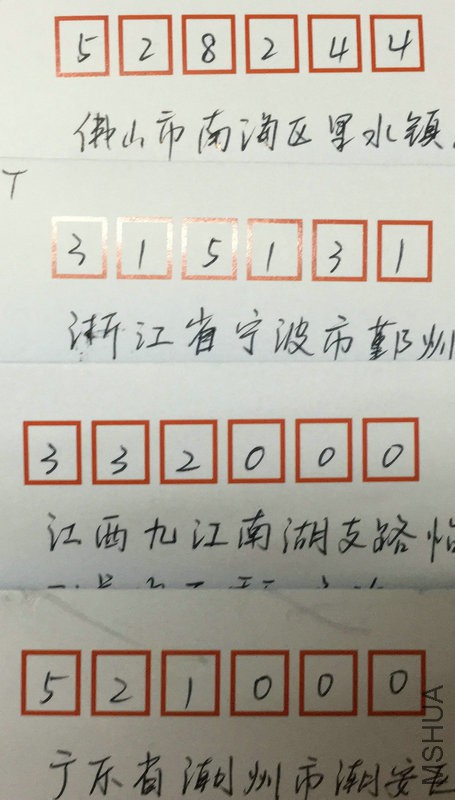 528244
佛山市南海区里水镇
T
315131
浙江省宁波市鄞州
332000
江西九江南湖支路怡
521000
广东省潮州市潮安区
MSHUA